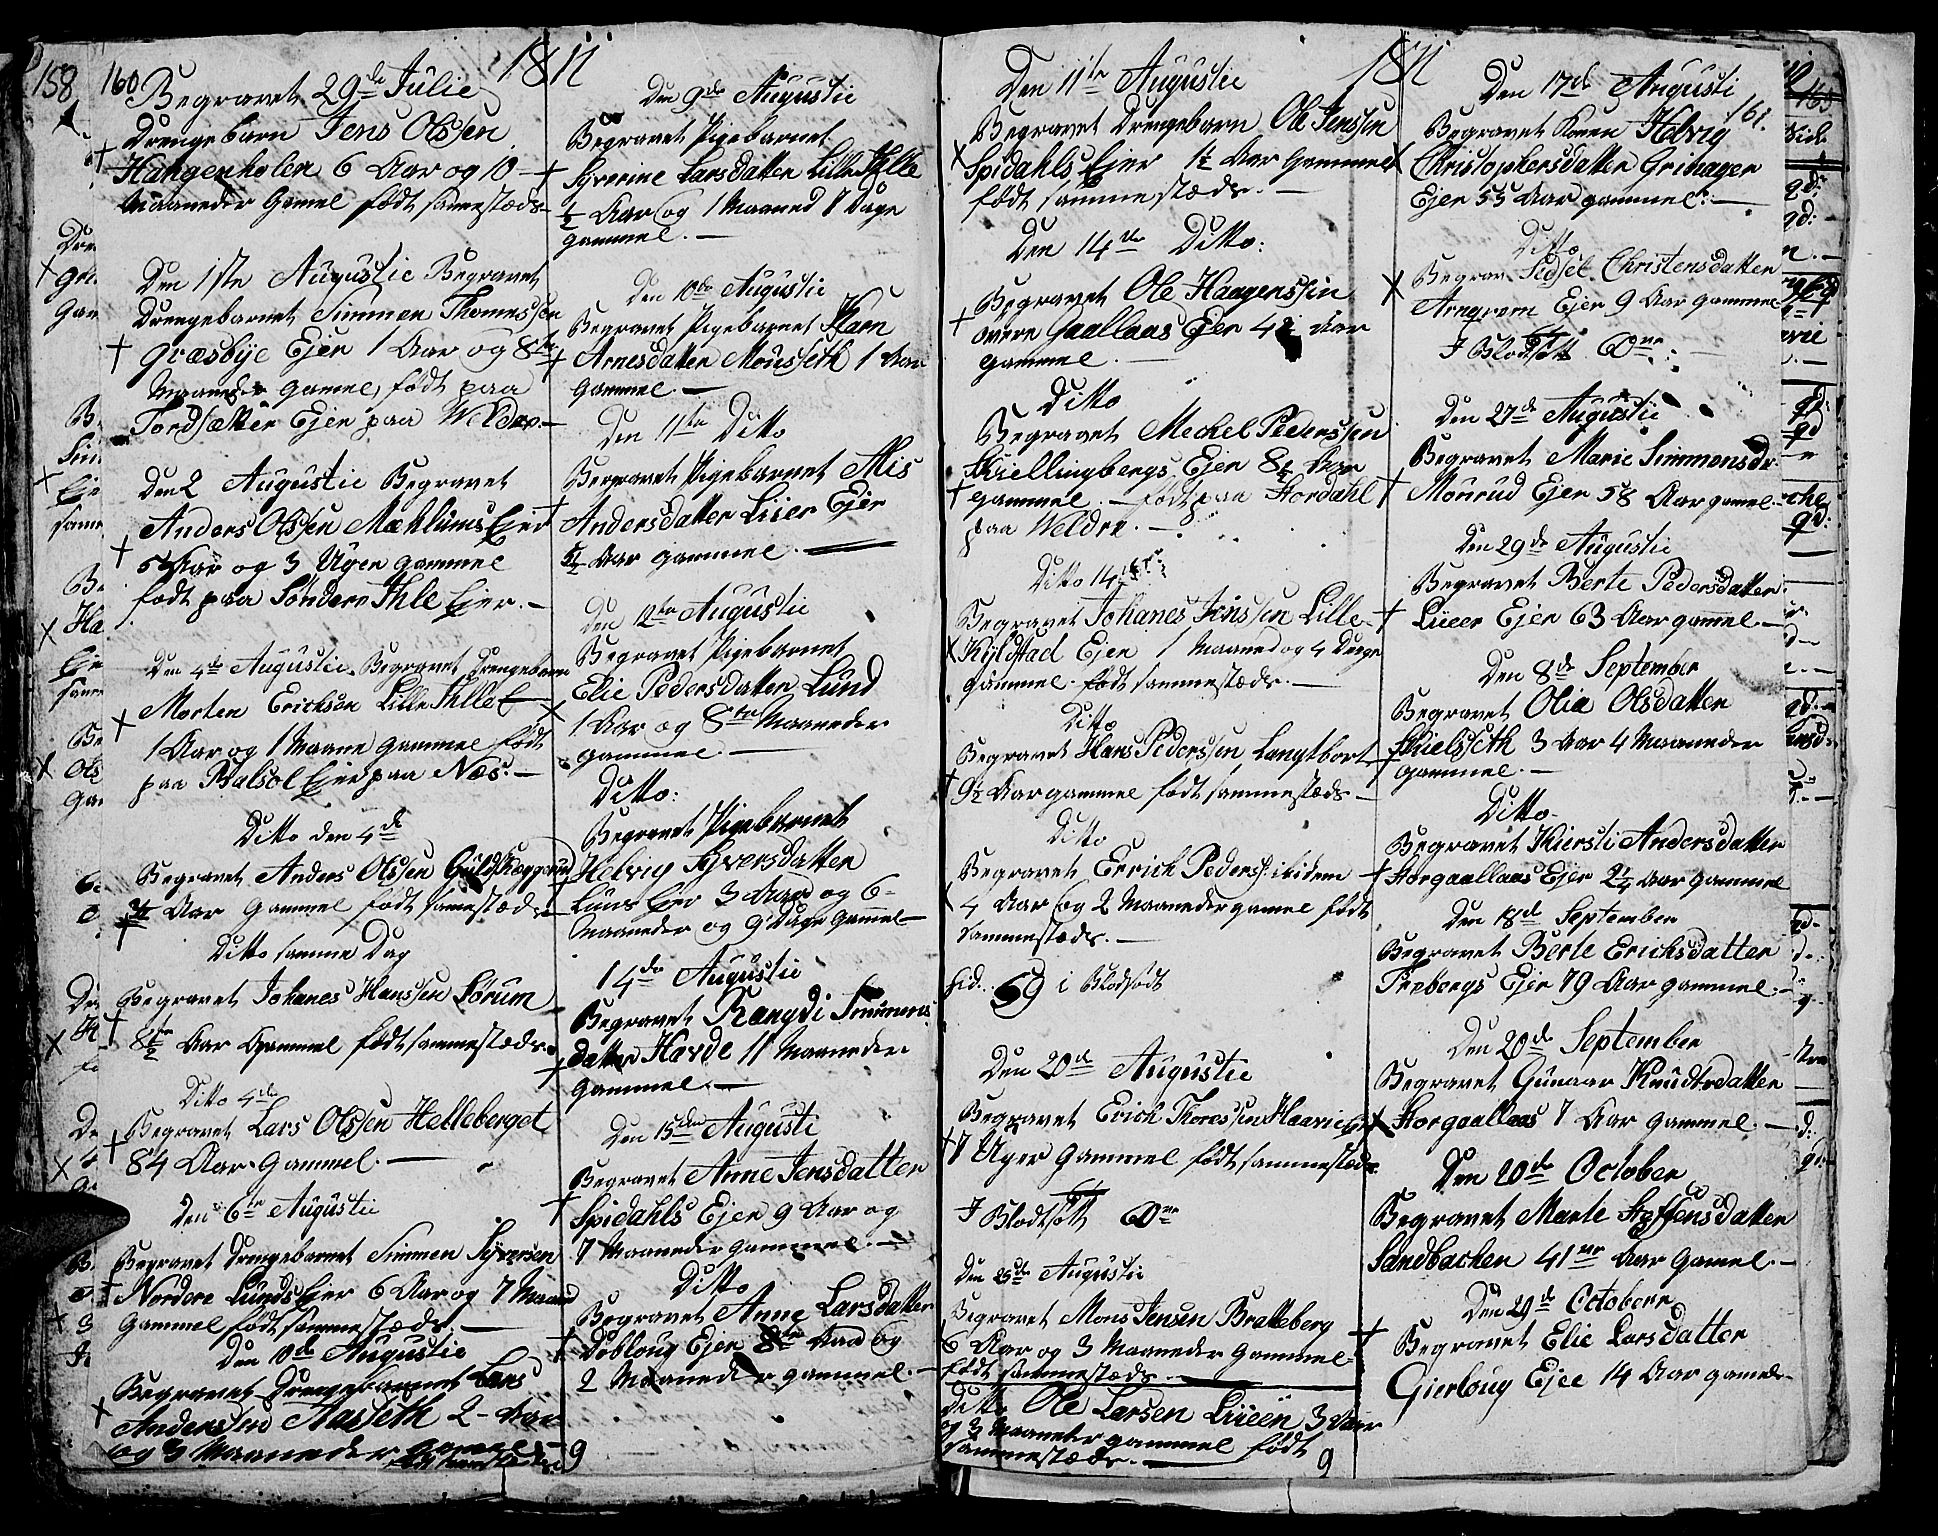 158
160
1811
Begravet 29de Julie
Drengebarn Jens Olssen
Haugenholen 6 Aar og 10
Maaneder Gamel født samestæds
Den 1ste Augustie Begravet
Drengebarnet Simmen Thomessen
Græsbye Ejer 1 Aar og 8te
Maaneder gamel, født paa
Fordsætter Ejer paa Weldre
Den 2 Augustie Begravet
Anders Olssen Mæhlums Ejer
5 Aar og 3 Ugen gammel
født paa Søndere Ihle Ejer.
Den 4de Augustie Begravet Drengebarn
Morten Ericksen Lille Ihlle E
1 Aar og 1 Maane gammel født
paa Balsol Ejer paa Næs.
Ditto den 4de
Begravet Anders Olssen Guldskæggerud
Aar Gammel født samestæds
Ditto samme Dag
Begravet Johanes Hanssen Sørum
8 1/2 Aar Gammel født sammestæds
Ditto 4de
Begravet Lars Olssen Helleberget
84 Aar Gammel.
Den 6te Augustie
Begravet Drengebarnet Simmen Syversen
Nordere Lunds Ejer 6 Aar og 7 Maaned
Gammel, født sammestæds.
Den 10de Augustie
Begravet Drengebarnet Lars
Anderssen Aasseth 2 Aar
og 3 Maaneder gamel
født sammestæds
Den 9de Augustie
Begravet Pigebarnet
Syverine Larsdatter Lille Ihlle
1/2 Aar og 1 Maaned 8 Dage
gammel.
Den 10de Augustie
Begravet Pigebarnet Karn
Arnesdatter Mousseth 1 Aar
gammel.
Den 11te Ditto
Begravet Pigebarnet Alis
Andersdatter Liier Ejer
5 1/2 Aar gammel.
Den 12te Augustie
Begravet Pigebarnet
Elie Pedersdatter Lund
1 Aar og 8te Maaneder
gammel
Ditto:
Begravet Pigebarnet
Helvig Syversdatter
Luus Ejer 3 Aar og 6
Maaneder og 9 Dage Gamel
14de Augustie
Begravet Rangdi Simmens
datter Havde 11 Maaneder
gammel.
Den 15den Augusti
Begravet Anne Jensdatter
Spidahls Ejer 9 Aar og
7 Maaneder gammel.
Ditto
Begravet Anne Larsdatter
Dobloug Ejer 8te Aar og
2 Maaneder gammel.
9
1811
Den 11te Augustie
Begravet Drengebarn Ole Jenssen
Spidahls Ejer 1 1/2 Aar Gammel
født sammestæds.
Den 14de Ditto:
Begravet Ole Haagenssen
øvere Gaallaas Ejer Aar
gammel
Ditto
Begravet Mechel Pederssen
Skiellingbergs Ejer 8 1/2 Aar
gammel. født paa Stordahl
paa Weldre.
Ditto 14
Begravet Johanes Jenssen Lille
Kyldstad Ejer 1 Maaned og 4 Dage
gammel. født sammestæds.
Ditto
Begravet Hans Pederssen Langtbort
9 1/2 Aar gammel født sammestæds
Ditto
Begravet Errich Peders: ibidem
4 Aar og 2 Maaneder gamel født
sammestæds.
69 i Blodsodt
Den 20de Augustie
Begravet Erich Thoressen
7 Uger Gammel født sammestæds
I Blodsott
Den 25de Augustie
Begravet Mons Jensen Bratteberg
6 Aar og 3 Maaneder Gammel
født sammestæds.
Ditto Ole Larsen Liieen 3 Aar
og 3 Maaneder gammel født
sammestæds.
9
161.
Den 17de Augusti
Begravet Konen Helvig
Christophersdatter Grimager
Ejer 55 Aar gammel.
Ditto
Begrav Sidsel Christensdatter
Arnqvern Ejer 9 Aar gammel
I Blodsott
Den 27de Augustie
Begravet Marie Simmensdr
Mourud Ejer 58 Aar gamel.
Den 29de Augustie
Begravet Berte Pedersdatter
Liieer Ejer 63 Aar gammel.
Den 8de September
Begravet Olia Olsdatter
Skielsseth 3 Aar 4 Maaneder
gammel.
Ditto.
Begravet Kiersti Andersdatter
Storgaallaas Ejer 2 1/4 Aar gammel
Den 18de September
Begravet Berte Erichsdatter
Frebergs Ejer 79 Aar gammel.
Den 20de September
Begravet Gunaar Knudtsdatter
Storgaallaas 7 Aar gammel.
Den 20de October
Begravet Marte Steffensdatter
Sandbacken 41 Aar Gamel.
Den 29de Octobere
Begravet Elie Larsdatter
Gierloug Ejee 14 Aar gamel